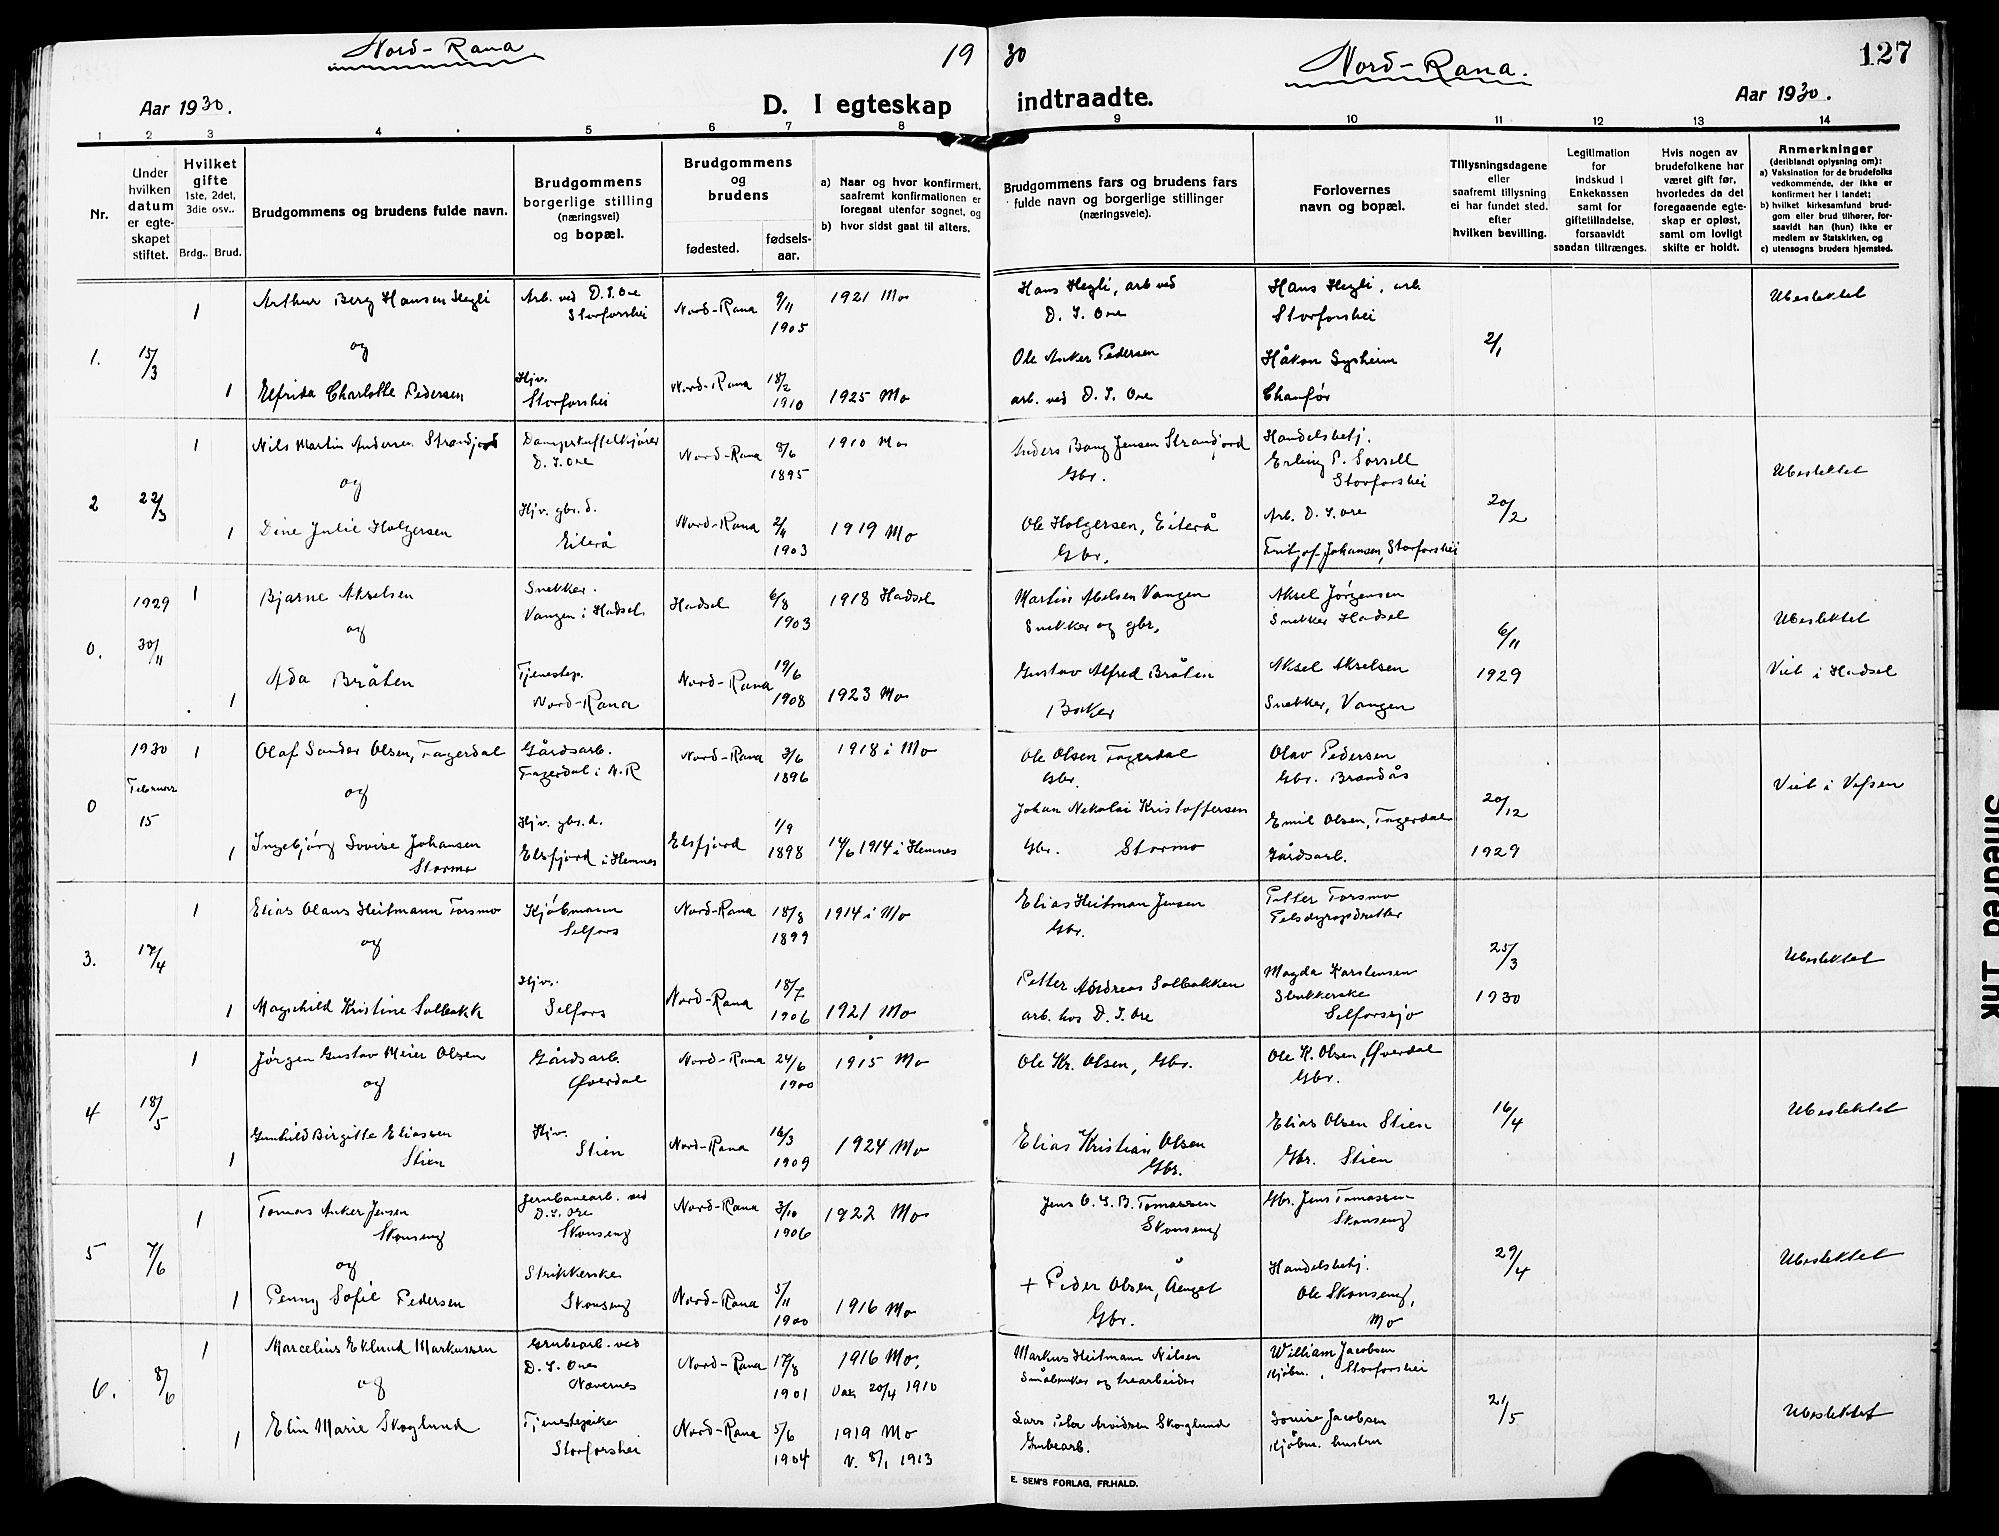 Nord-Rana
19
30
Nord-Rana.
127
Aar 1930.
D. I egteskap
indtraadte.
Aar 1930.
1 2 3 4 5 6 7 8
9 10 11 12 13 14
Nr.
Under
hvilken
datum
er egte-
skapet
stiftet.
Hvilket
gifte
1ste, 2det,
3die osv..
Brdg.. Brud.
Brudgommens og brudens fulde navn.
Brudgommens
borgerlige stilling
(næringsvei)
og bopæl.
Brudgommens
og
brudens
fødested.
fødsels-
aar.
a) Naar og hvor konfirmert,
saafremt konfirmationen er
foregaat utenfor sognet, og
b) hvor sidst gaat til alters.
Brudgommens fars og brudens fars
fulde navn og borgerlige stillinger
(næringsveie).
Forlovernes
navn og bopæl.
Tillysningsdagene
eller
saafremt tillysning
ei har fundet sted.
efter
hvilken bevilling.
Legitimation
for
indskud i
Enkekassen
samt for
giftetilladelse,
forsaavidt
saadan tiltrænges.
Hvis nogen av
brudefolkene har
været gift før,
hvorledes da det
foregaaende egte-
skap er opløst,
samt om lovligt
skifte er holdt.
Anmerkninger
(deriblandt oplysning om):
a) Vaksination for de brudefolks
vedkommende, der ikke er
konfirmert her i landet;
b) hvilket kirkesamfund brud-
gom eller brud tilhører, for-
saavidt han (hun) ikke er
medlem av Statskirken, og
c) utensogns bruders hjemsted.
1.
15/3
1
Arthur Berg Hansen Hegli
og
1
Elfrida Charlotte Pedersen
Arb. ved D. I. Ore
Storforshei
Hjv.
Storforshei
Nord-Rana 9/11 1905
Nord-Rana 18/2 1910
1921 Mo
1925 Mo
Hans Hegli, arb ved
D. I. Ore
Ole Anker Pedersen
arb. ved D. I. Ore
Hans Hegli, arb.
Storforshei
Håkon Sysheim
Chaufør
2/1
Ubeslektet
2
22/3
1
Nils Martin Andersen Strandjord
og
1
Dine Julie Holgersen
Dampskuffelkjører
D. I. Ore
Hjv. gbr. d.
Eiterå
Nord-Rana 8/6 1895
Nord-Rana 2/4 1903
1910 Mo
1919 Mo
Anders Bang Jensen Strandjord
Gbr.
Ole Holgersen, Eiterå
Gbr.
Handelsbetj.
Erling P. Sorsell
Storforshei
Arb. D. I. Ore
Fritjof Johansen, Storforshei
20/2
Ubeslektet
0.
1929
30/11
1
Bjarne Akselsen
og
1
Ada Bråten
Snekker.
Vangen i Hadsel
Tjenestep.
Nord-Rana
Hadsel 6/8 1903
Nord-Rana 19/6 1908
1918 Hadsel
1923 Mo
Martin Abelsen Vangen
Snekker og gbr,
Gustav Alfred Bråten
Baker
Aksel Jørgensen
Snekker Hadsel
Aksel Akselsen
Snekker, Vangen
6/11
1929
Ubeslektet
Viet i Hadsel
0
1930
Februar
15
1
Olaf Sander Olsen, Fagerdal
og
1
Ingebjørg Lovise Johansen
Stormo
Gårdsarb.
Fagerdal i N. R
Hjv. gbr. d.
Elsfjord i Hemnes
Nord-Rana 3/6 1896
Elsfjord 1/9 1898
1918 i Mo
14/6 1914 i Hemnes
Ole Olsen Fagerdal
Gbr.
Johan Nekolai Kristoffersen
Gbr. Stormo
Olav Pedersen
Gbr. Brandås
Emil Olsen, Fagerdal
Gårdsarb.
20/12
1929
Viet i Vefsen
3.
17/4
1
Elias Olaus Heitmann Forsmo
og
1
Magnhild Kristine Solbakk
Kjøbmann
Selfors
Hjv.
Selfors
Nord-Rana 18/8 1899
Nord-Rana 18/7 1906
1914 i Mo
1921 Mo
Elias Heitman Jensen
Gbr.
Petter Andreas Solbakken
arb. hos D. I. Ore
Petter Forsmo
Pelsdyropdretter
Magda Karstensen
Strikkerske
Selforssjø
25/3
1930
Ubeslektet
4
18/5
1
Jørgen Gustav Meier Olsen
og
1
Gunhild Birgitte Eliassen
Stien
Gårdsarb.
Øverdal
Hjv.
Stien
Nord-Rana 24/6 1900
Nord-Rana 16/3 1909
1915 Mo
1924 Mo
Ole Kr. Olsen, Gbr.
Elias Kristian Olsen
Gbr.
Ole K. Olsen, Øverdal
Gbr.
Elias Olsen Stien
Gbr. Stien
16/4
Ubeslektet
5
7/6
1
Tomas Anker Jensen
Skonseng
og
1
Penny Sofie Pedersen
Jernbanearb. ved
D. I. Ore
Skonseng
Strikkerske
Skonseng
Nord-Rana 3/10 1906
Nord-Rana 5/11 1900
1922 Mo
1916 Mo
Jens O. G. B. Tomassen
Skonseng
+ Peder Olsen, Ånget
Gbr.
Gbr. Jens Tomassen
Skonseng
Handelsbetj.
Ole Skonseng,
Mo
29/4
Ubeslektet
6.
8/6
1
Marcelius Eklund Markussen
og
1
Elin Marie Skoglund
Grubearb. ved
D. I. Ore
Nævernes
Tjenestepike
Storforshei
Nord-Rana 17/8 1901
Nord-Rana 5/6 1904
1916 Mo.
Vax 20/4 1910
1919 Mo
V. 8/1 1913
Markus Heitmann Nilsen
Småbruker og trearbeider
Lars Peter Arvidsen Skoglund
Grubearb.
William Jacobsen
Kjøbm., Storforshei
Lovise Jacobsen
Kjøbm. hustru
21/5
Ubeslektet
E. SEM'S FORLAG, FR.HALD.
Smedred Ink